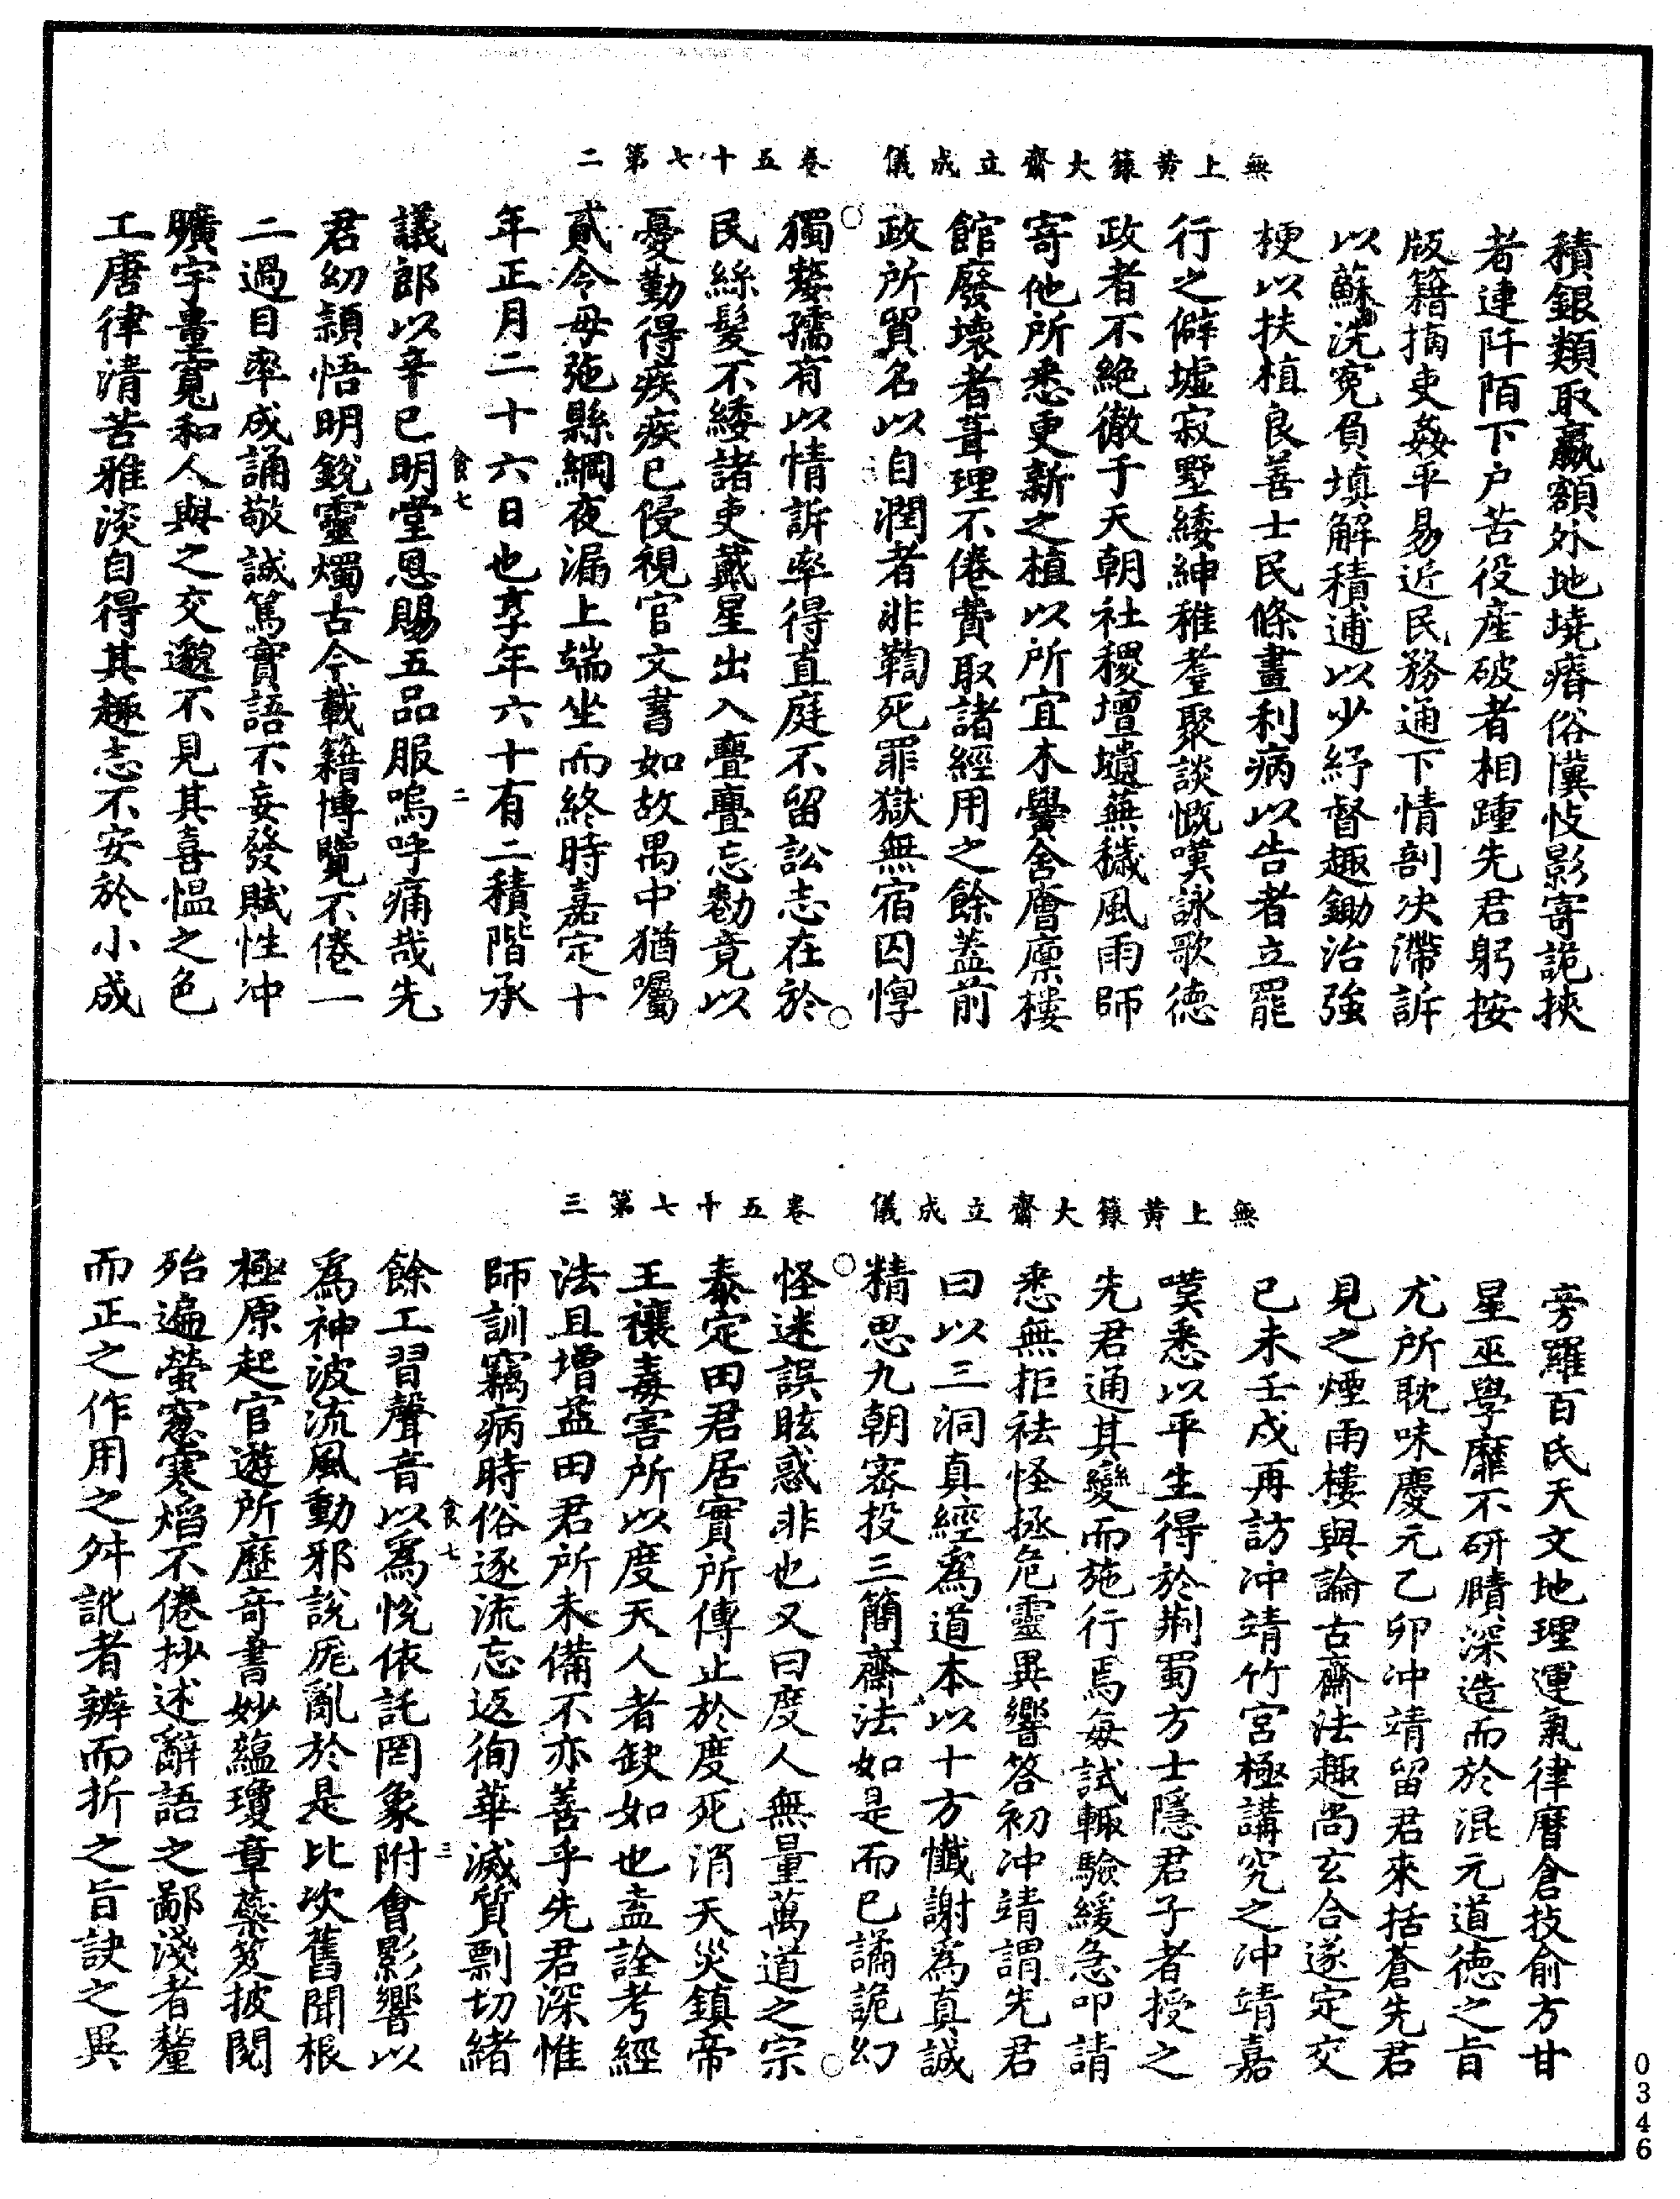 無上黃籙大齋立成儀　卷五十七第二
積銀類取贏額外地墝瘠俗獷忮影寄詭挾
者連阡陌下户苦役產破者相踵先君躬按
版籍摘吏姦平易近民務通下情剖决滯訴
以蘇洗寃負填解積逋以少紓督趣鋤治強
梗以扶植良善士民條畫利病以告者立罷
行之僻墟寂墅緌紳稚耋聚談慨嘆詠歌德
政者不絶徹于天朝社稷壇壝蕪穢風雨師
寄他所悉更新之植以所宜木黌舍廥廩樓
館廢壞者葺理不倦費取諸經用之餘蓋前
政所貿名以自潤者非鞫死罪獄無宿囚惸
獨嫠孺有以情訴率得直庭不留訟志在於
民絲髮不緌諸吏戴星出入亹亹忘勌竟以
憂勤得疾疾已侵視官文書如故禺中猶囑
貳令毋弛縣綱夜漏上端坐而終時嘉定十
年正月二十六日也享年六十有二積階承
食七　二
議郎以辛巳明堂恩賜五品服嗚呼痛哉先
君幼頴悟明銳靈燭古今載籍博覽不倦一
二過目率成誦敬誠篤實語不妄發賦性冲
曠宇量寬和人與之交邈不見其喜慍之色
工唐律清苦雅淡自得其趣志不安於小成
無上黃籙大齋立成儀　卷五十七第三
旁羅百氏天文地理運氣律曆倉技俞方甘
星巫學靡不研賾深造而於混元道德之旨
尤所耽味慶元乙卯冲靖留君來括蒼先君
見之煙雨樓與論古齋法趣尚玄合遂定交
已未壬戌再訪冲靖竹宮極講究之冲靖嘉
嘆悉以平生得於荆蜀方士隱君子者授之
先君通其變而施行焉每試輒驗緩急叩請
悉無拒祛怪拯危靈異響答初冲靖謂先君
曰以三洞真經爲道本以十方懺謝為真誠
精思九朝密投三簡齋法如是而已譎詭幻
怪迷誤眩惑非也又曰度人無量萬道之宗
泰定田君居實所傳止於度死消天災鎮帝
王禳毒害所以度天人者缺如也盍詮考經
法且增益田君所未備不亦善乎先君深惟
師訓竊病時俗逐流忘返徇華滅質剽切緒
食七　三
餘工習聲音以爲悅依託罔象附會影響以
爲神波流風動邪說厖亂於是比次舊聞根
極原起官遊所歷奇書妙蘊瓊章蘂笈披閱
殆遍螢窓寒熖不倦抄述辭語之鄙淺者釐
而正之作用之舛訛者辨而折之旨訣之異
0346